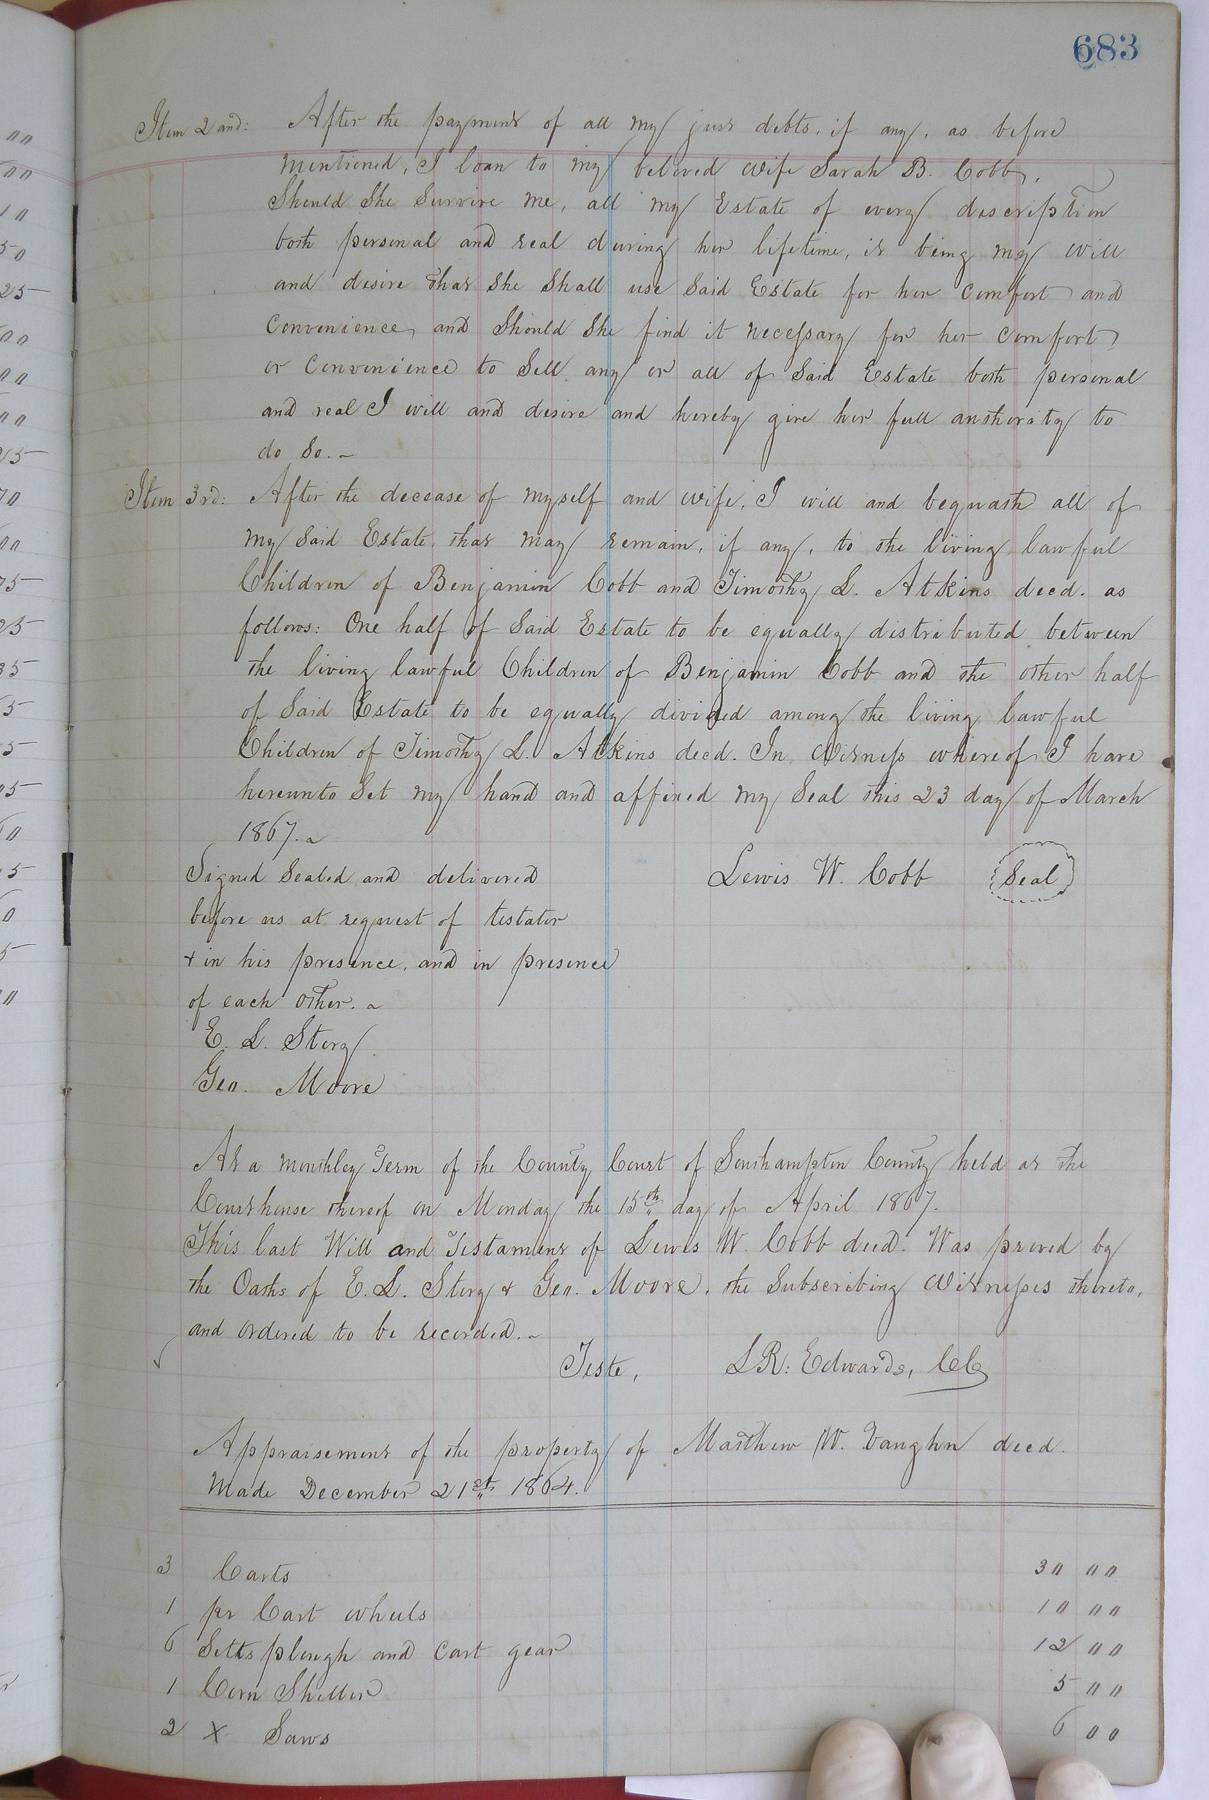 683
Item 2and: After the payment of all my just debts, if any, as before
mentioned, I loan to my beloved wife Sarah B. Cobb,
Should She Survive me, all my Estate of every discription
both personal and real during her lifetime, it being my will
and desire that she shall use Said Estate for her comfort and
convenience, and Should She find it necessary for her comfort
or convenience to Sell any or all of Said Estate both personal
and real I will and desire and hereby give her full authority to
do so. ~
Item 3rd: After the decease of myself and wife, I will and bequeath all of
my Said Estate that may remain, if any, to the living lawful
Children of Benjamin Cobb and Timothy L. Atkins deed. as
follows: One half of Said Estate to be equally distributed between
the living lawful Children of Benjamin Cobb and the other half
of Said Estate to be equally divided among the living lawful
Children of Timothy L. Atkins deed. In Witness whereof I have
hereunto Set my hand and affixed my Seal this 23 day of March
1867. ~
Signed Sealed and delivered
Lewis W. Cobb Seal
before us at request of testator
+ in his presence, and in presence
of each other. ~
E. L. Story
Geo. Moore
At a monthley Term of the County Court of Southampton County held at the
Courthouse thereof on Monday the 15th day of April 1867.
This last Will and Testament of Lewis W. Cobb deed. Was proved by
the Oaths of E. L. Story + Geo. Moore, the Subscribing Witnesses thereto,
and ordered to be recorded. ~
Teste, L R: Edwards, CC
Appraisement of the property of Matthew W. Vaughn deed.
Made December 21st 1864.
3 Carts 30 00
1 pr Cart wheels 10 00
6 Setts plough and cart gear 12 00
1 Corn Sheller 5 00
2 X Saws 6 00